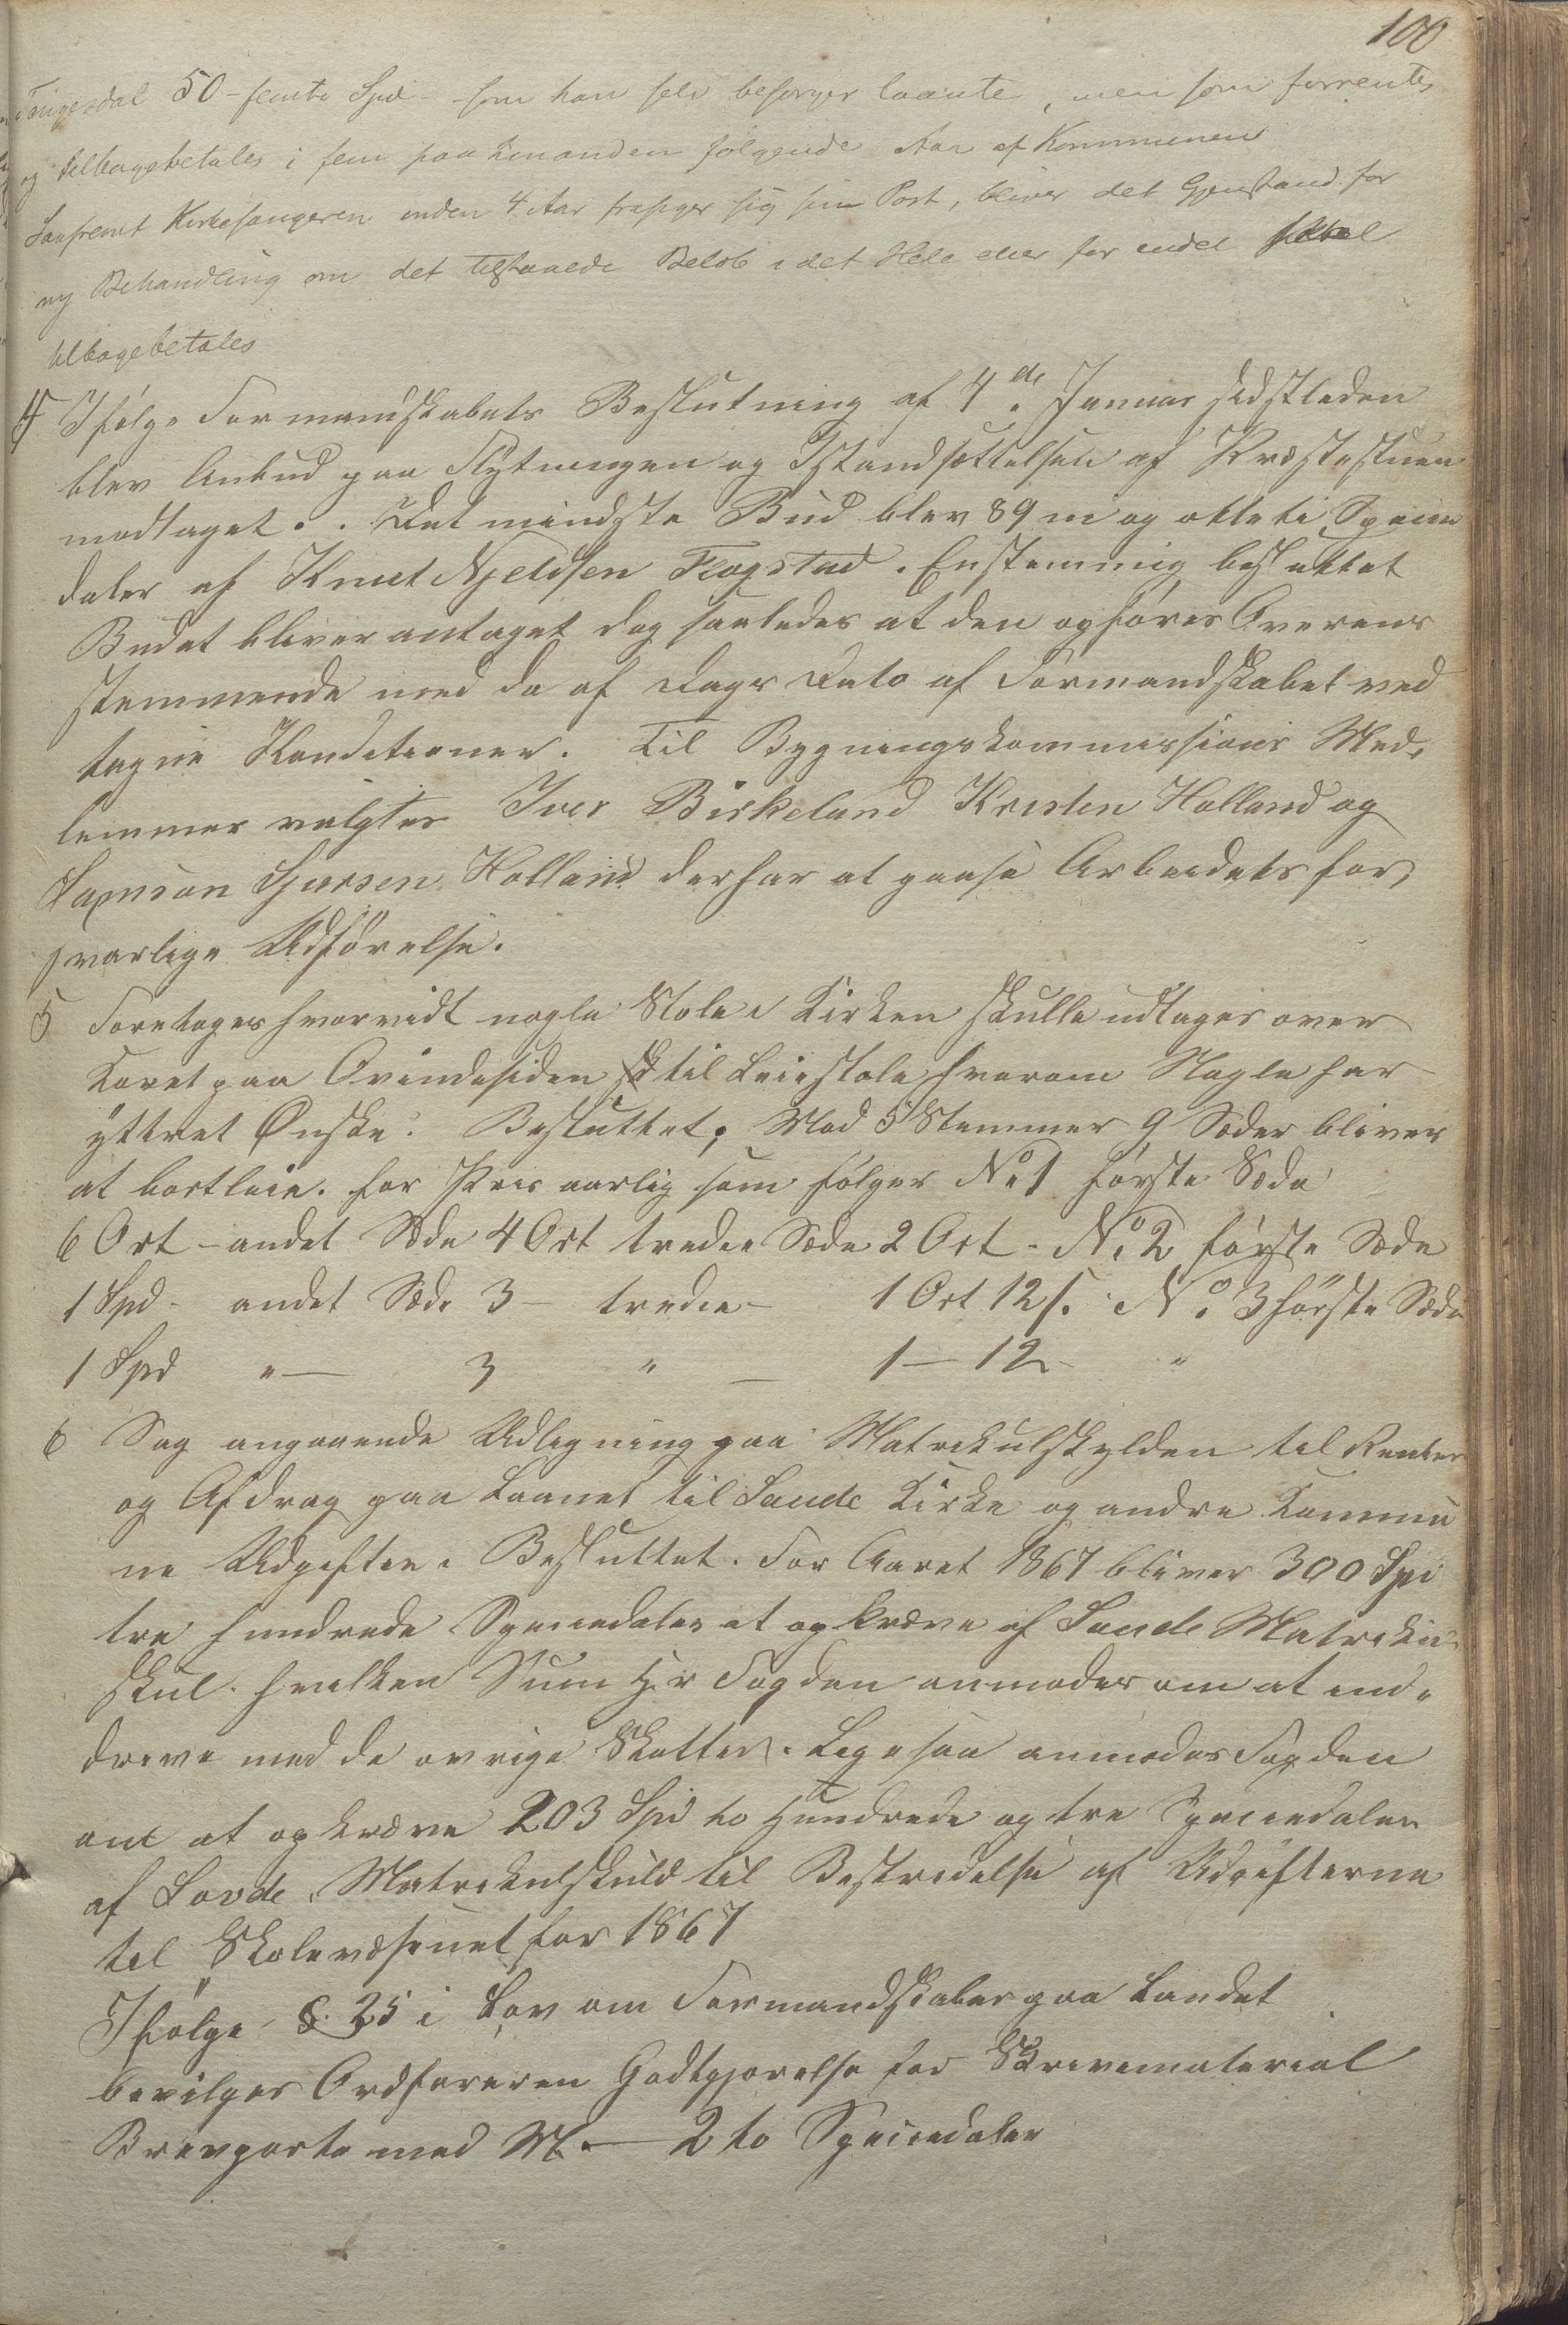 100
Tengesdal 50 - femti Spd - som han selv besørger laante, men som forrentes
og tilbagebetales i fem paa hinanden følgende Aar af Kommunen
Saafremt Kirkesangeren inden 4 Aar frasiger sig sin Post, bliver det Gjenstand for
ny Behandling om det tilstaaede Beløb i det Hele eller for endel skal
tilbagebetales
4 Ifølge Formandskabets Beslutning af 4de Januar sidstleden
blev Anbud paa Flytningen og Istandsættelsen af Præstestuen
modtaget. Det mindste Bud blev 89 ni og otteti Specie
daler af Knut Njeldsen Flogstad. Enstemmig besluttet
Budet bliver antaget dog saaledes at den opføres Overens
stemmende med de af Dags Dato af Formandskabet ved
tagne Konditioner. Til Bygningskommissions Med,
lemmer valgtes Iver Birkeland Kristen Holland og
Samson Sjursen Holland der har at paase Arbeidets for,
svarlige Udførelse.
5 Foretoges hvorvidt nogle Stole i Kirken skulle udtages over
Koret paa Qvindesiden til Leiestole hvorom Nogle har
yttret Ønske. Besluttet; Mod 5 Stemmer 9 Sæder bliver
at bortleie. for Pris aarlig som følger No 1 første Sæde
6 Ort - andet Sæde 4 Ort tredie Sæde 2 Ort - No 2 første Sæde
1 Spd - andet Sæde 3 - tredie - 1 Ort 12 s. No 3 første Sæde
1 Spd " — 3 " — 1 — 12 - "
6 Sag angaaende Udligning paa Matrikulskylden til Renter
og Afdrag paa Laanet til Saude Kirke og andre Kommu
ne Udgifter. Besluttet. For Aaret 1867 bliver 300 Spd
tre hundrede Speciedaler at opkræve af Saude Matriku
skul. hvilken Sum Hr Fogden anmodes om at ind,
drive med de øvrige Skatter. Ligesaa anmodes Fogden
om at opkræve 203 Spd to Hundrede og tre Speciedaler
af Sovde Matrikulskuld til Bestridelse af Udgifterne
til Skolevæsenet for 1867
Ifølge § 25 i Lov om Formandskaber paa Landet
bevilges Ordføreren Godtgjørelse for Skrivematerial
Brevporto med M. — 2 to Speciedaler